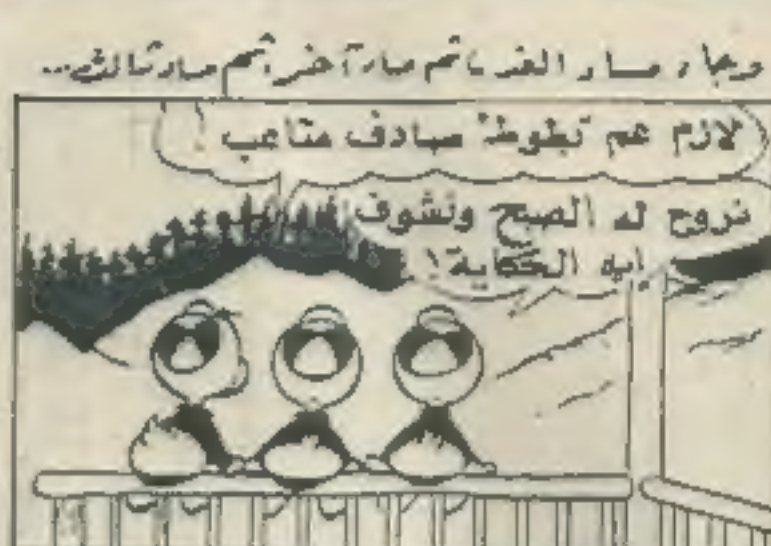 وجاء مساء الغد، ثم مساء آخر، ثم مساء ثالث...
لازم عم "بطوط" صادف متاعب !
نروح له الصبح ونشوف
إيه الحكاية !